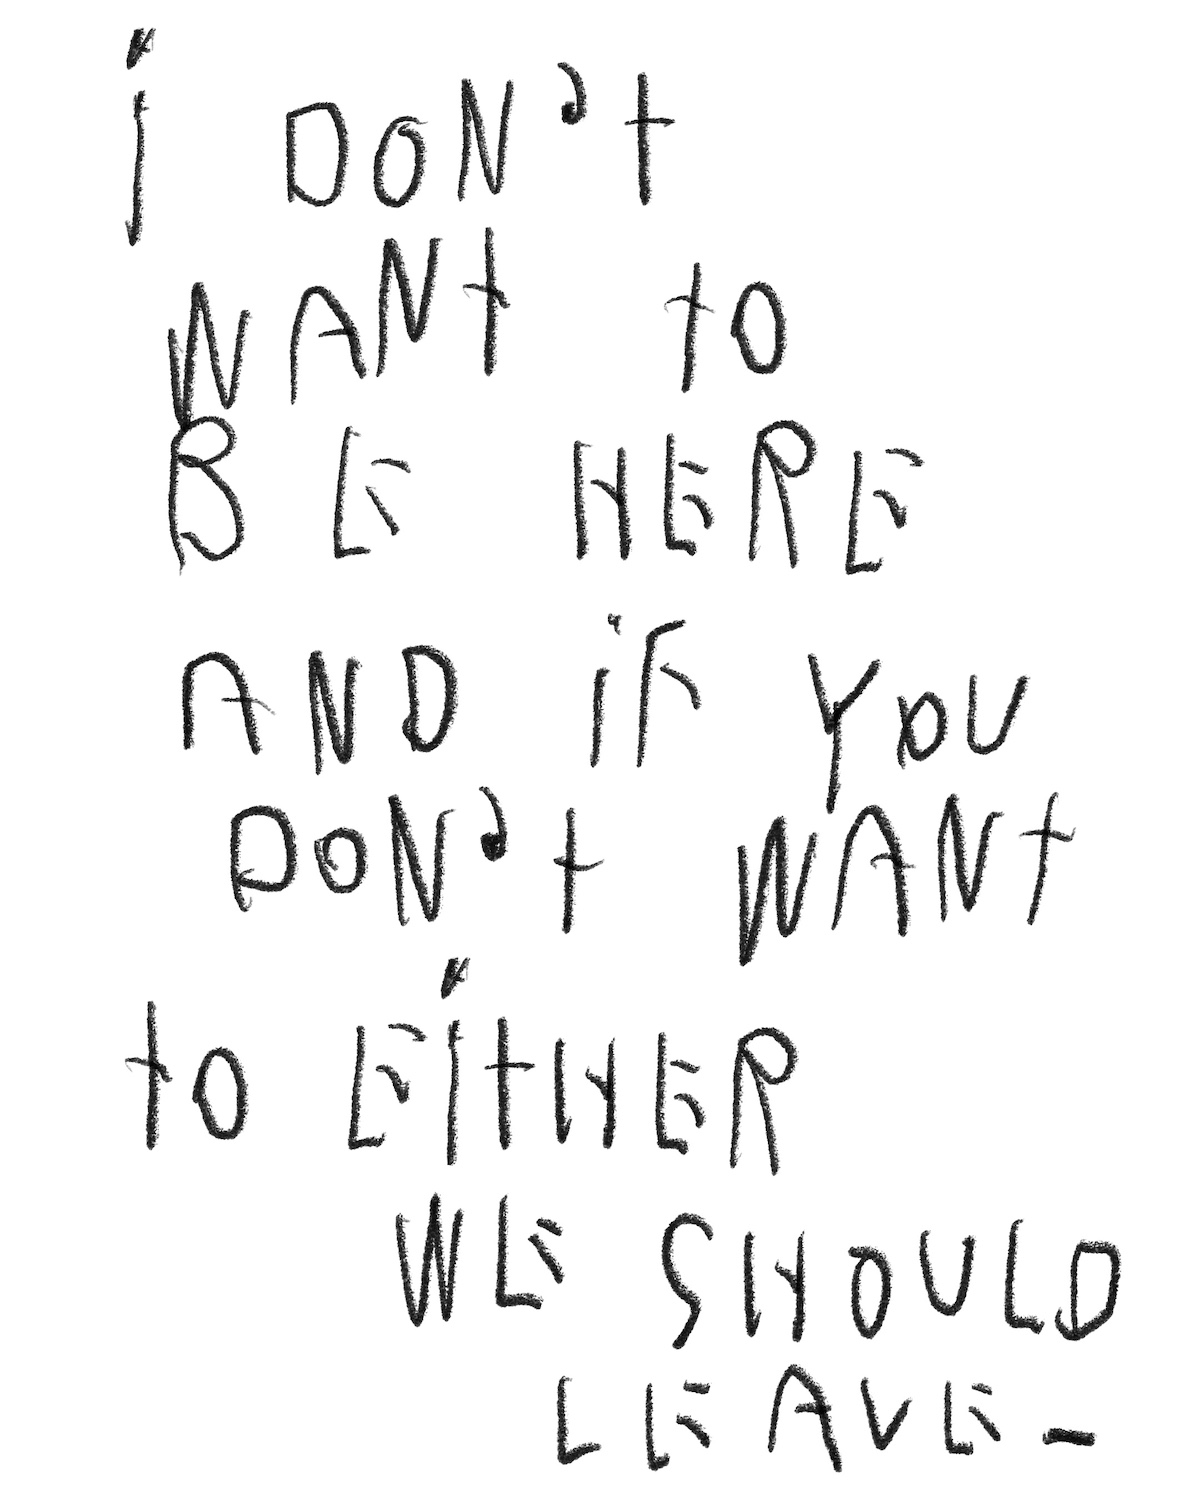 i DON't
WANt tO
BE HERE
AND iF YOU
DON't WANt
tO EitHER
WE SHOULD
LEAVE_